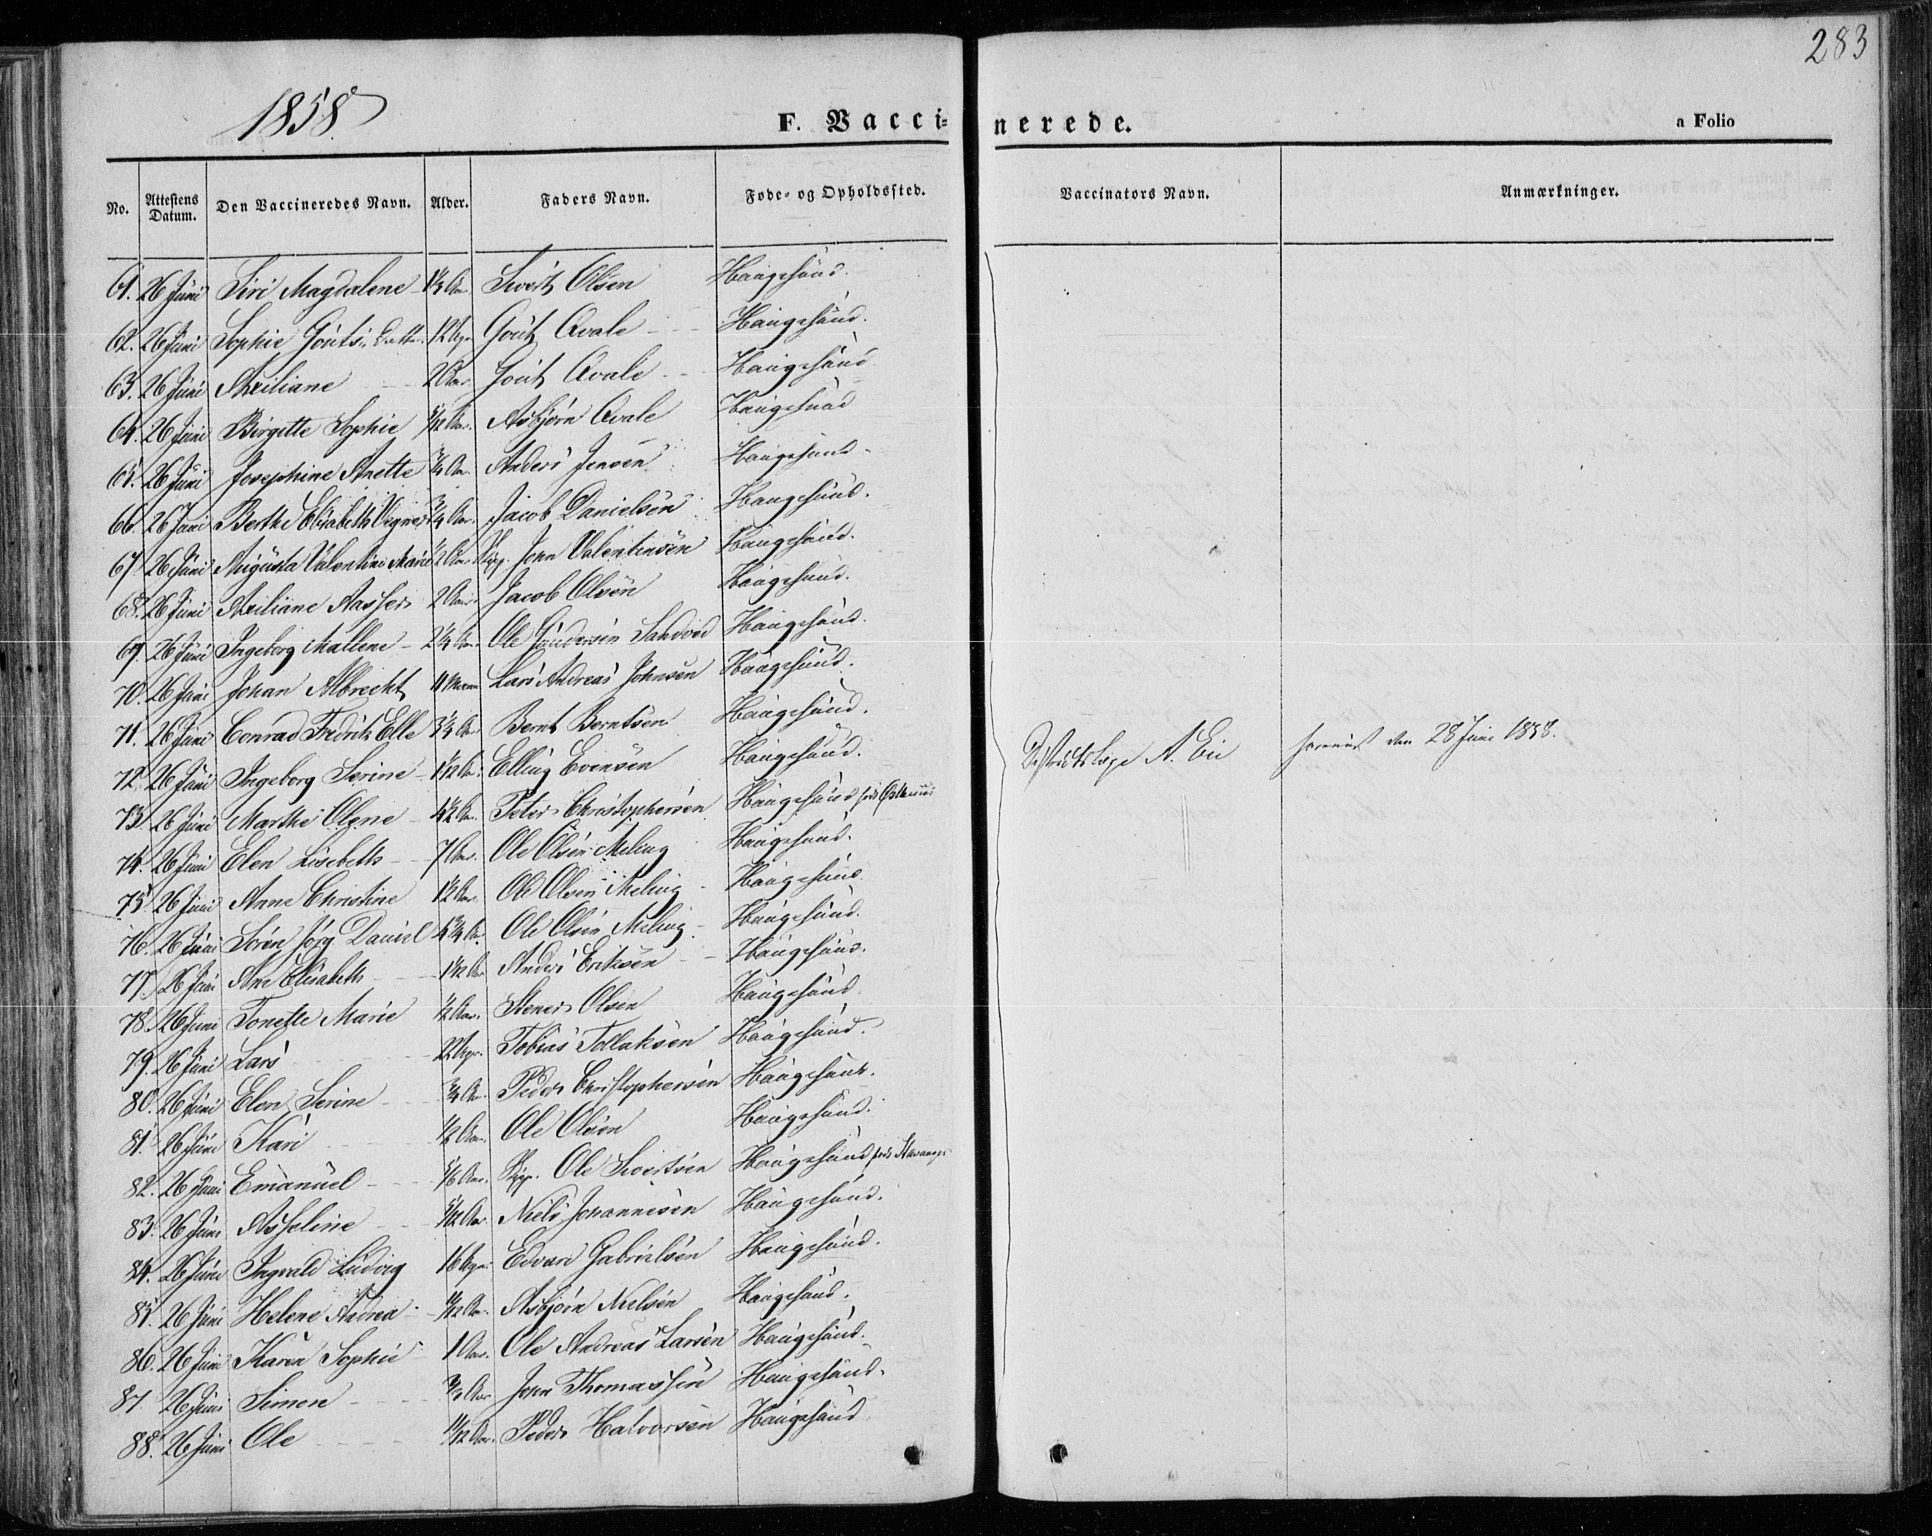 283
1858
F. Vaccinerede.
a Folio
No. Attestens Datum. Den Vaccineredes Navn. Alder. Faders Navn. Føde- og Opholdssted. Vaccinators Navn. Anmærkninger.
61. 26 Juni Siri Magdalene Sivert Olsen Haugesund.
62. 26 Juni Sophie Qvale Haugesund.
63. 26 Juni Axiliane 2 Aar. Qvale Haugesund
64. 26 Juni Birgitte Sophie Asbjørn Qvale Haugesund
65. 26 Juni Josephine Anette Anders Jensen Haugesund
66. 26 Juni Berthe Elisabeth 3/4 Aar. Jacob Danielsen Haugesund.
67. 26 Juni Augusta Valentine Marie 2 Aar Skipp. John Valentinsen Haugesund.
68. 26 Juni Axiliane 2 Aar Jacob Olsen Haugesund.
69. 26 Juni Ingeborg Mallene 2 1/4 Aar Ole Gundersen Sandved Haugesund.
70. 26 Juni Johan Albrecht 11 Lars Andreas Johnsen Haugesund.
71. 26 Juni Conrad Fredrik Bernt Berntsen Haugesund.
Distriktslæge A. Eie den 28 Juni 1858.
72. 26 Juni Ingeborg Serine Elling Evensen Haugesund.
73. 26 Juni Marthe Olene Peter Christophersen Haugesund
74. 26 Juni Elen Lisebeth 7 Aar. Ole Olsen Meling Haugesund.
75. 26 Juni Anne Christine 1 1/2 Aar. Ole Olsen Meling Haugesund
76. 26 Juni Søren Daniel Ole Olsen Meling Haugesund.
77. 26 Juni Ane Elisabeth Anders Eriksen Haugesund.
78. 26 Juni Tonette Marie 1/2 Aar. Stener Olsen Haugesund
79. 26 Juni Lars 22 Uger. Tobias Tollaksen Haugesund.
80. 26 Juni Elen Serine 3/4 Aar Peder Christophersen Haugesund.
81. 26 Juni Kari 1/2 Aar. Ole Olsen Haugesund.
82. 26 Juni Emanuel Skipp. Ole Sivertsen Haugesund født Stavanger
83. 26 Juni Asseline Niels Johannesen Haugesund.
84. 26 Juni Ingvald Ludvig 16 Uger Edvard Gabrielsen Haugesund.
85. 26 Juni Helene Andrea Asbjørn Nielsen Haugesund.
86. 26 Juni Karen Sophie 1 Aar. Ole Andreas Larsen Haugesund.
87 26 Juni Simon John Thomassen Haugesund.
88. 26 Juni Ole 11/12 Aar. Peder Halvorsen Haugesund